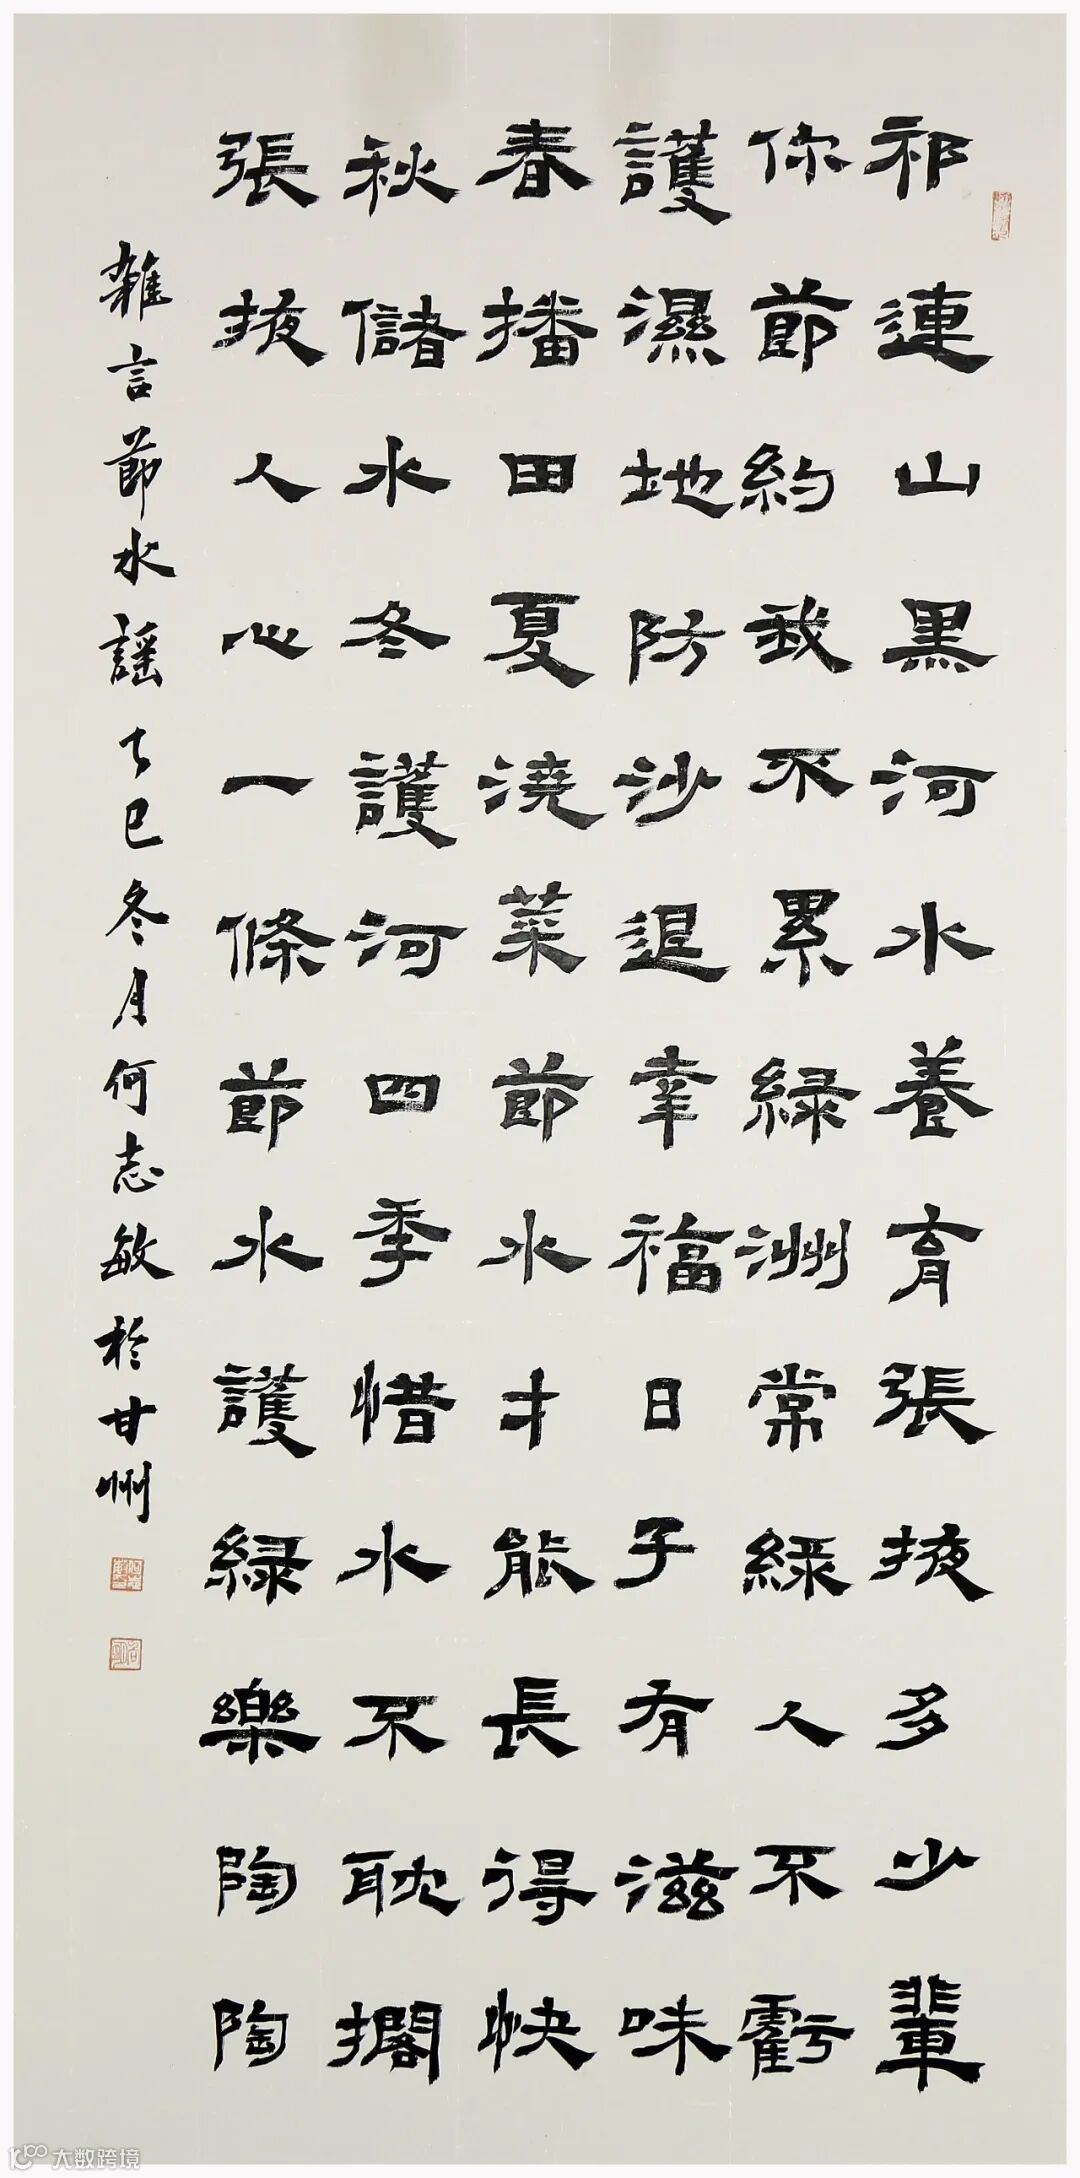 祁連山黑河水養育張掖多少輩
你節約我不累綠洲常綠人不虧
護濕地防沙退幸福日子有滋味
春播田夏澆菜節水才能長得快
秋儲水冬護河四季惜水不耽擱
張掖人心一條節水護綠樂陶陶
雜言節水謡乙巳冬月何志敏於甘州
大数跨境